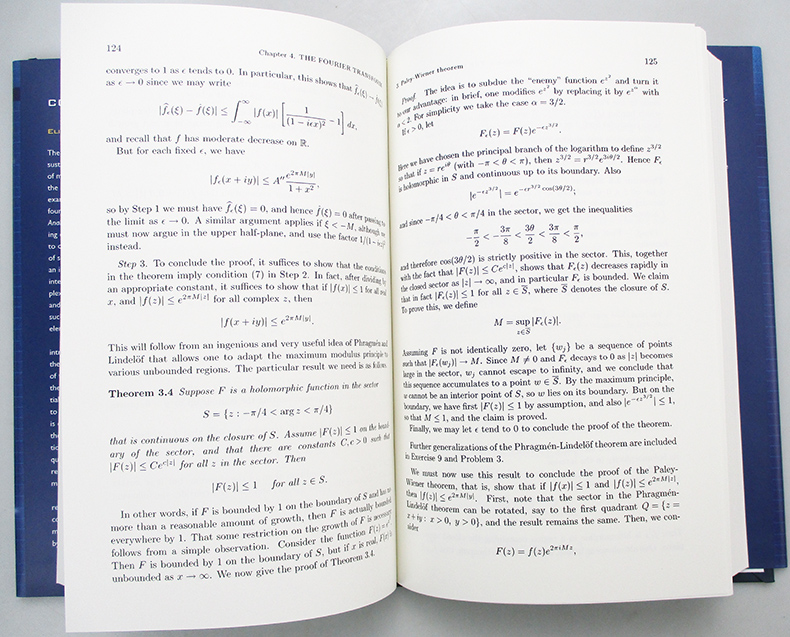 124
Chapter 4. THE FOURIER TRANSFORM
converges to 1 as ϵ tends to 0. In particular, this shows that f̂_ϵ(ξ) → f̂(ξ)
as ϵ → 0 since we may write
|f̂_ϵ(ξ) − f̂(ξ)| ≤ ∫_{−∞}^{∞} |f(x)| [1/(1−iϵx)² − 1] dx,
and recall that f has moderate decrease on ℝ.
But for each fixed ϵ, we have
|f_ϵ(x + iy)| ≤ A'' e^{2πM|y|}/(1 + x²),
so by Step 1 we must have f̂_ϵ(ξ) = 0, and hence f̂(ξ) = 0 after passing to
the limit as ϵ → 0. A similar argument applies if ξ < −M, although we
must now argue in the upper half-plane, and use the factor 1/(1 − iϵz)²
instead.
Step 3. To conclude the proof, it suffices to show that the conditions
in the theorem imply condition (7) in Step 2. In fact, after dividing by
an appropriate constant, it suffices to show that if |f(x)| ≤ 1 for all real
x, and |f(z)| ≤ e^{2πM|z|} for all complex z, then
|f(x + iy)| ≤ e^{2πM|y|}.
This will follow from an ingenious and very useful idea of Phragmén and
Lindelöf that allows one to adapt the maximum modulus principle to
various unbounded regions. The particular result we need is as follows.
Theorem 3.4 Suppose F is a holomorphic function in the sector
S = {z : −π/4 < arg z < π/4}
that is continuous on the closure of S. Assume |F(z)| ≤ 1 on the bound-
ary of the sector, and that there are constants C, c > 0 such that
|F(z)| ≤ Ce^{c|z|} for all z in the sector. Then
|F(z)| ≤ 1 for all z ∈ S.
In other words, if F is bounded by 1 on the boundary of S and has no
more than a reasonable amount of growth, then F is actually bounded
everywhere by 1. That some restriction on the growth of F is necessary
follows from a simple observation. Consider the function F(z) = e^{z²}.
Then F is bounded by 1 on the boundary of S, but if x is real, F(x) is
unbounded as x → ∞. We now give the proof of Theorem 3.4.
Paley-Wiener theorem
125
Proof. The idea is to subdue the "enemy" function e^{z²} and turn it
to our advantage: in brief, one modifies e^{z²} by replacing it by e^{z^α} with
α < 2. For simplicity we take the case α = 3/2.
If ϵ > 0, let
F_ϵ(z) = F(z)e^{−ϵz^{3/2}}.
Here we have chosen the principal branch of the logarithm to define z^{3/2}
so that if z = re^{iθ} (with −π < θ < π), then z^{3/2} = r^{3/2}e^{3iθ/2}. Hence F_ϵ
is holomorphic in S and continuous up to its boundary. Also
|e^{−ϵz^{3/2}}| = e^{−ϵr^{3/2} cos(3θ/2)};
and since −π/4 < θ < π/4 in the sector, we get the inequalities
−π/2 < −3π/8 < 3θ/2 < 3π/8 < π/2,
and therefore cos(3θ/2) is strictly positive in the sector. This, together
with the fact that |F(z)| ≤ Ce^{c|z|}, shows that F_ϵ(z) decreases rapidly in
the closed sector as |z| → ∞, and in particular F_ϵ is bounded. We claim
that in fact |F_ϵ(z)| ≤ 1 for all z ∈ S̅, where S̅ denotes the closure of S.
To prove this, we define
M = sup_{z∈S̅} |F_ϵ(z)|.
Assuming F is not identically zero, let {w_j} be a sequence of points
such that |F_ϵ(w_j)| → M. Since M ≠ 0 and F_ϵ decays to 0 as |z| becomes
large in the sector, w_j cannot escape to infinity, and we conclude that
this sequence accumulates to a point w ∈ S̅. By the maximum principle,
w cannot be an interior point of S, so w lies on its boundary. But on the
boundary, we have first |F(z)| ≤ 1 by assumption, and also |e^{−ϵz^{3/2}}| ≤ 1,
so that M ≤ 1, and the claim is proved.
Finally, we may let ϵ tend to 0 to conclude the proof of the theorem.
Further generalizations of the Phragmén-Lindelöf theorem are included
in Exercise 9 and Problem 3.
We must now use this result to conclude the proof of the Paley-
Wiener theorem, that is, show that if |f(x)| ≤ 1 and |f(z)| ≤ e^{2πM|z|},
then |f(z)| ≤ e^{2πM|y|}. First, note that the sector in the Phragmén-
Lindelöf theorem can be rotated, say to the first quadrant Q = {z =
x + iy : x > 0, y > 0}, and the result remains the same. Then, we con-
sider
F(z) = f(z)e^{2πiMz},